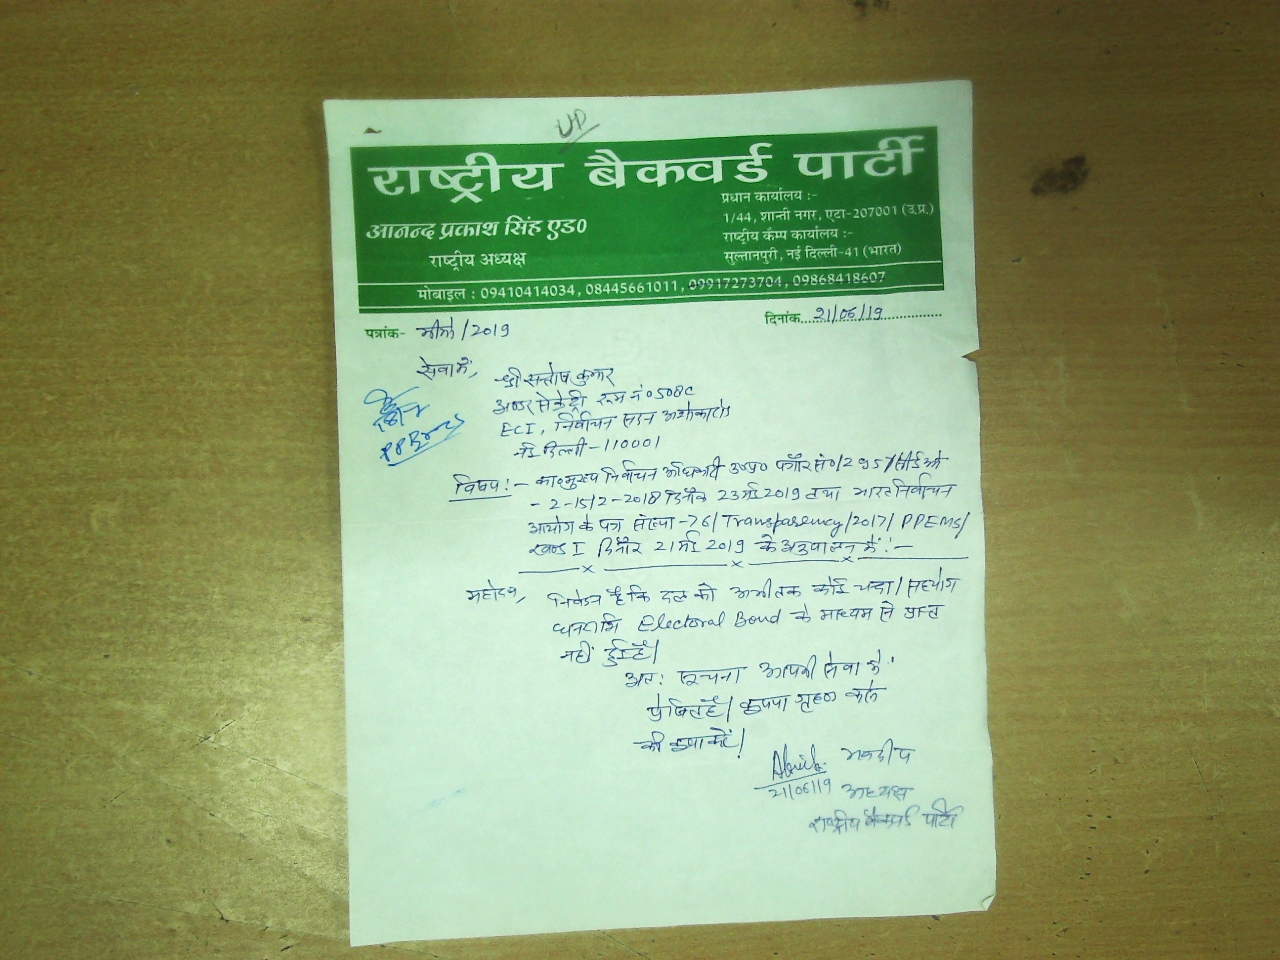 UP
राष्ट्रीय बैकवर्ड पार्टी
आनन्द प्रकाश सिंह एड0
राष्ट्रीय अध्यक्ष
प्रधान कार्यालय :-
1/44, शान्ती नगर, एटा-207001 (उ.प्र.)
राष्ट्रीय कैम्प कार्यालय :-
सुल्तानपुरी, नई दिल्ली-41 (भारत)
मोबाइल : 09410414034, 08445661011, 09917273704, 09868418607
पत्रांक- /2019
दिनांक 21/06/19
सेवा में,
श्री सन्तोष कुमार
अण्डर सेक्रेट्री रूम नं० 508C
ECI, निर्वाचन सदन अशोका रोड
नई दिल्ली-110001
विषय :- मुख्य निर्वाचन अधिकारी उ०प्र० पत्राँक सं०/295/सीईओ
-2-15/2-2018 दिनाँक 23 मई 2019 तथा भारत निर्वाचन
आयोग के पत्र संख्या -76/Transparency/2017/PPEMS/
खण्ड I दिनाँक 21 मई 2019 के अनुपालन में :-
महोदय,
निवेदन है कि दल को अभी तक कोई चन्दा/सहयोग
धनराशि Electoral Bond के माध्यम से प्राप्त
नहीं हुई है।
अत: सूचना आपकी सेवा में
प्रेषित है। कृपया ग्रहण करने
की कृपा करें।
भवदीय
21/06/19 अध्यक्ष
राष्ट्रीय बैकवर्ड पार्टी